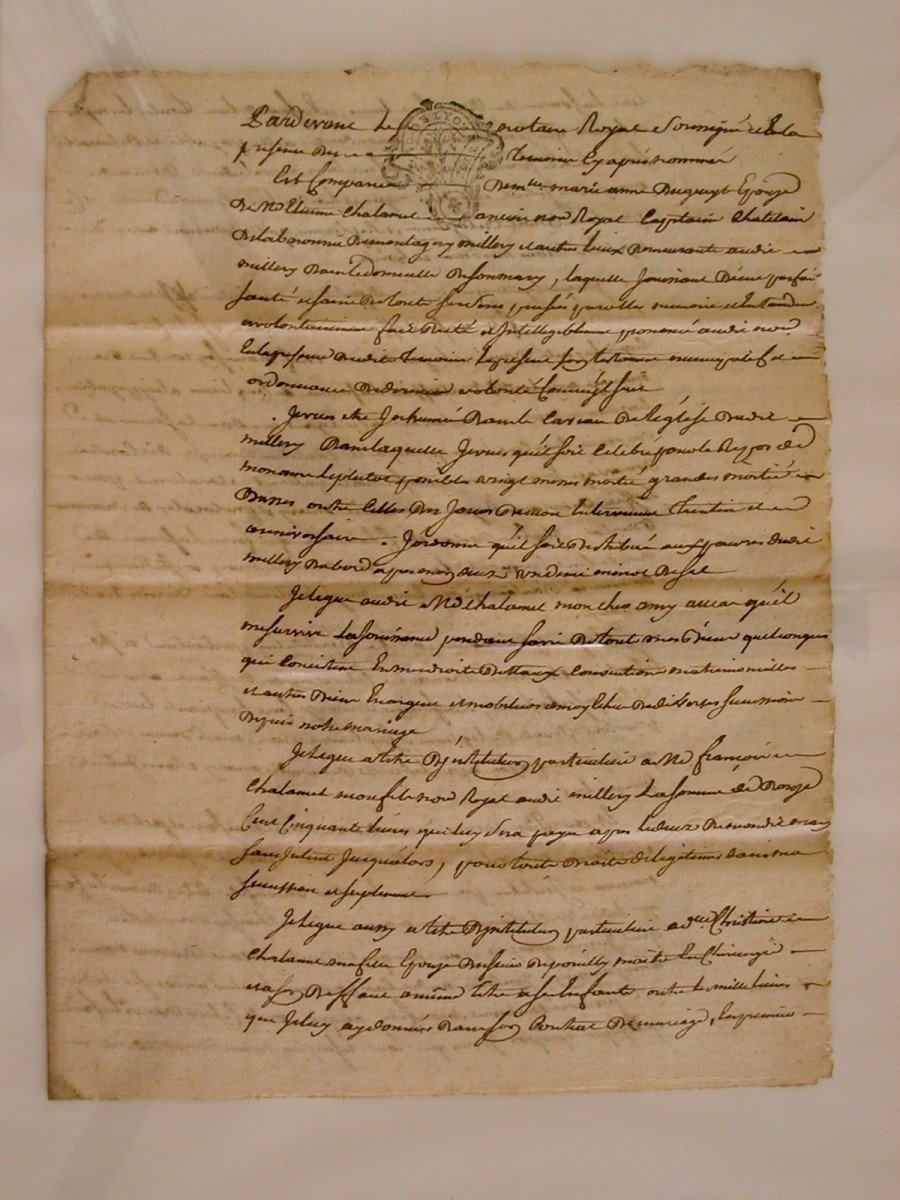 Pardevant le notaire Royal Soussigné et En la
presence des temoins Cy apres nommés
Est Comparue Dem.lle marie anne Epouse
De Me Etienne Chalamel ancien no.re Royal Capitaine Chatelain
De la baronnie De montagny millery et autres lieux Demeurante audit
millery Dans le domicille De son mary, laquelle Jouissant Dieu parfaite
santé et saine De tous ses sens pensée parolle memoire et Entendem.
a volontairement fait Dicté et Intelligiblement prononcé audit no.re
En la presence Desdits temoins le present son testament nuncupatif et
ordonnance De derniere volonté Comme s'ensuit
Je veux etre Inhumée Dans le Caveau De l'église Dudit
millery Dans laquelle Je veux qu'il soit Celebré pour le Repos de
mon ame le plutot possible vingt messes moitié grandes moitié
Basses outre Celles Des Jours De mon Enterrement trentin et
anniversaire. J'ordonne qu'il soit Distribué aux pauvres dudit
millery D'abord apres mon deces un demi minot De sel
Je legue audit Me Chalamel mon cher amy au cas qu'il
me survive La Jouissance pendant sa vie De tous mes Biens quelconques
qui Consistent En mes droits Dottaux Constitution matrimonialles
et autres Biens En argent et mobiliers a moy Echus De diverses successions
Depuis notre mariage
Je legue a titre D'institution particuliere a Me françois
Chalamel mon fils no.re Royal audit millery La somme de Douze
Cent Cinquante livres qui luy sera payée apres le deces De mondit mary
sans Interet Jusqu'alors, pour tous Droits de legitime dans ma
succession et suplement
Je legue aussy a titre D'institution particuliere a d.lle Christine
Chalamel ma fille Epouse De sieur De pouilly maitre En Chirurgie
et a son Deffaut a meme titre a ses Enfants outre les mille livres
que Je luy ay données Dans son Contrat De mariage, En premier